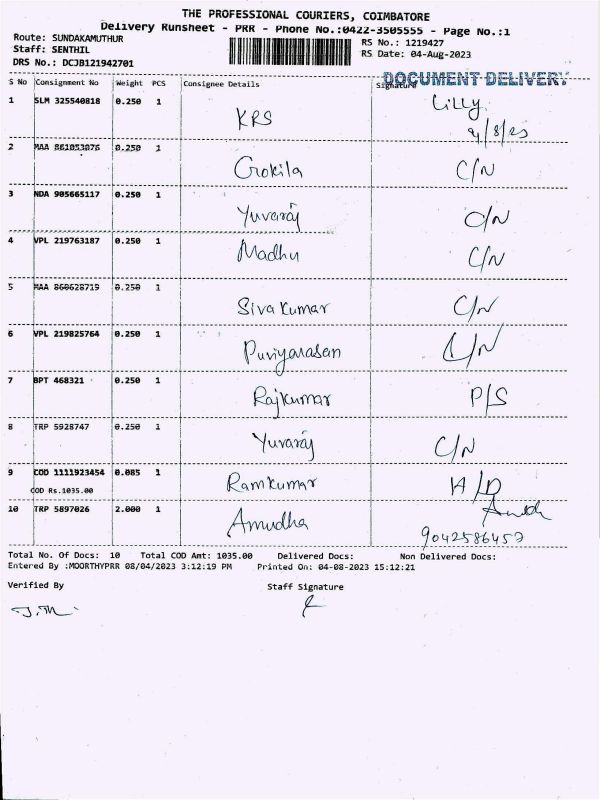 THE PROFESSIONAL COURIERS, COIMBATORE
Delivery Runsheet - PRR - Phone No.:0422-3505555 - Page No.:1
Route: SUNDAKAMUTHUR
Staff: SENTHIL
DRS No.: DCJB121942701
RS No.: 1219427
RS Date: 04-Aug-2023
DOCUMENT DELIVERY
S No Consignment No Weight PCS Consignee Details Signature
1 SLM 325540818 0.250 1 KRS Lilly
4/8/23
2 MAA 861053076 0.250 1 Gokila C/N
3 NDA 905665117 0.250 1 Yuvaraj C/N
4 VPL 219763187 0.250 1 Madhu C/N
5 MAA 860628719 0.250 1 Siva Kumar C/N
6 VPL 219825764 0.250 1 Puviyarasan C/N
7 BPT 468321 0.250 1 Rajkumar P/S
8 TRP 5928747 0.250 1 Yuvaraj C/N
9 COD 1111923454 0.085 1 Ramkumar H/D
COD Rs.1035.00
10 TRP 5897026 2.000 1 Amudha
9042586457
Total No. Of Docs: 10 Total COD Amt: 1035.00 Delivered Docs: Non Delivered Docs:
Entered By :MOORTHYPRR 08/04/2023 3:12:19 PM Printed On: 04-08-2023 15:12:21
Verified By Staff Signature